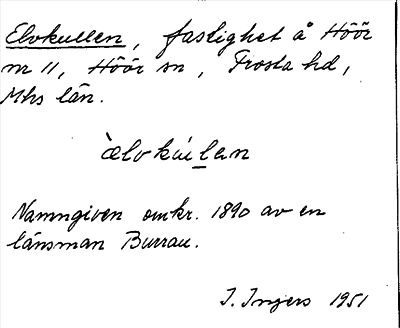 Elvkullen, fastighet å Höör
nr 11, Höör sn, Frosta hd,
Mhs län.
`ælvkú̀lan
Namngiven omkr. 1890 av en
länsman Burrau.
I. Ingers 1951